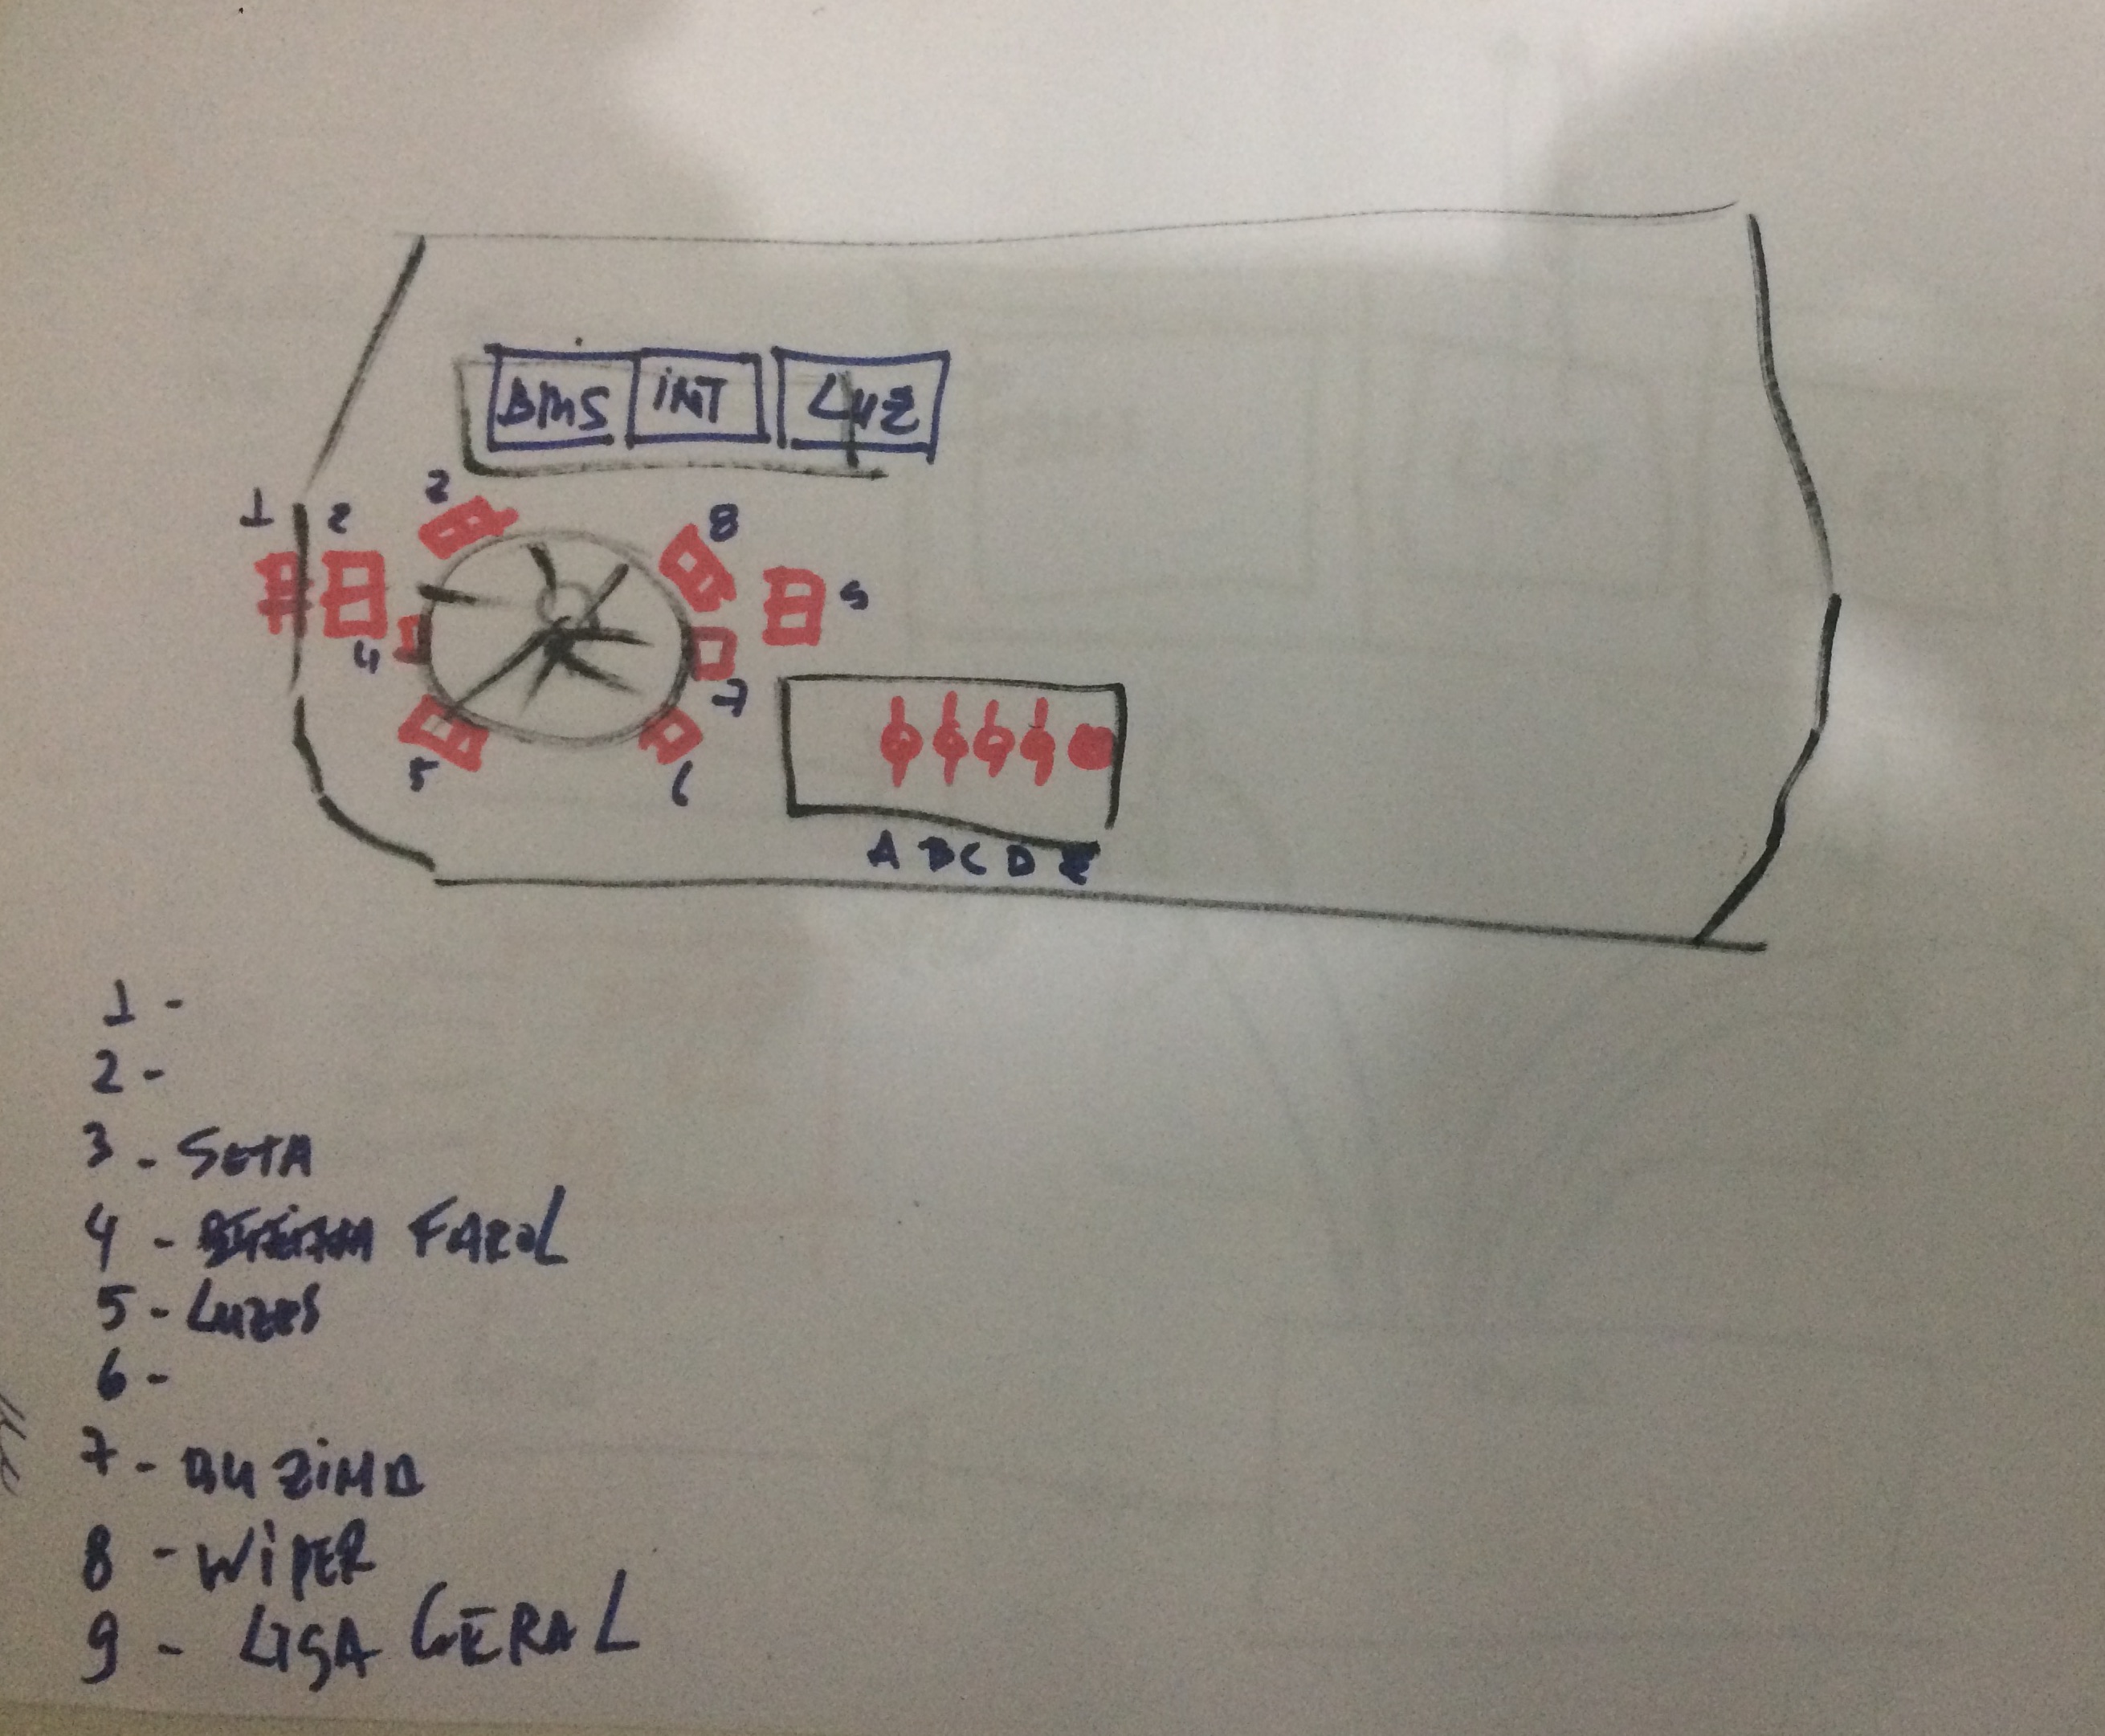 BMS INT LUZ
2
8
1 2
9
4
7
5
6
A B C D E
1 -
2 -
3 - SETA
4 - FAROL
5 - LUZES
6 -
7 - BUZINA
8 - WIPER
9 - LIGA GERAL